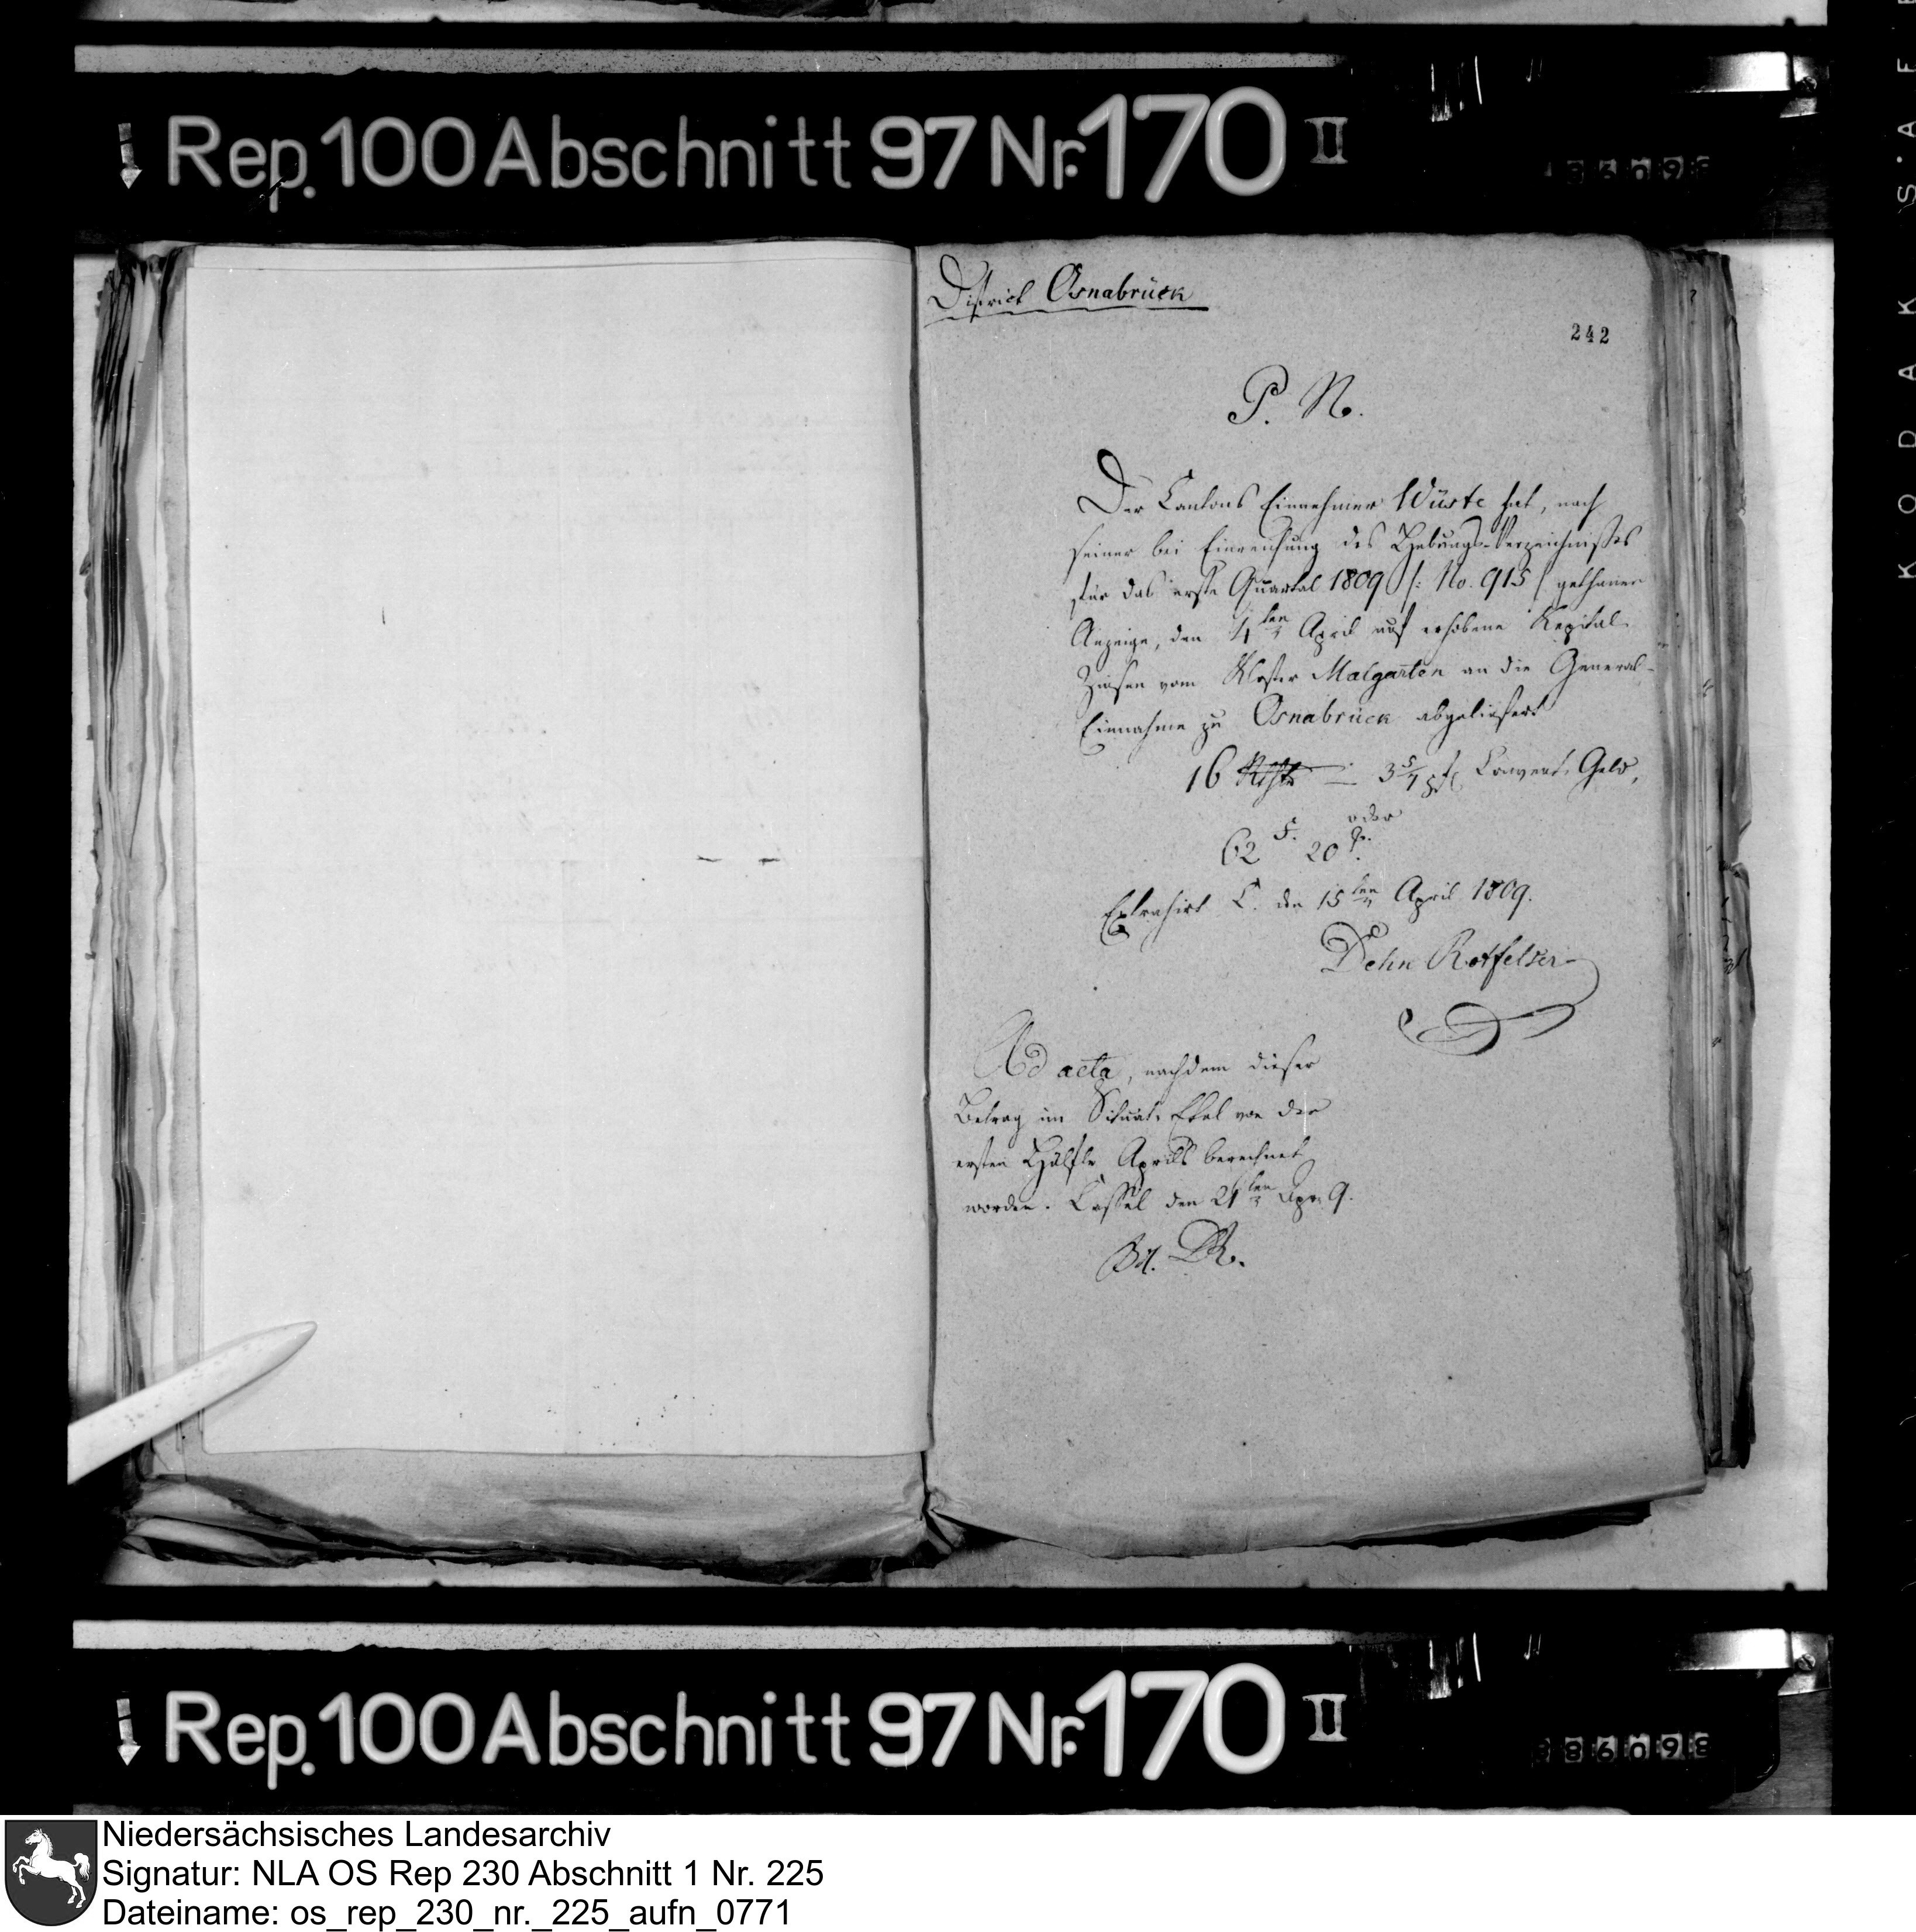 Rep. 100 Abschnitt 97 Nr. 170 II
District Osnabrück
242
P. N.
Der Cantons Einnehmer Wüste hat, nach
seiner bei Einreichung des Hebungs-Verzeichnißes
für das erste Quartal 1809 /: No. 915 / gethaner
Anzeige, den 4ten April auf erhobene Kapital
Zinsen vom Kloster Malgarten an die General-
Einnahme zu Osnabrück abgeliefert
16 Rthlr — 3 5/7 pf Convent. Geld,
oder
62 20
Extrahirt C. den 15ten April 1809.
Dehn Rotfelser
Ad acta, nachdem dieser
Betrag im Situat. Etat von der
ersten Hälfte Aprils berechnet
worden. Cassel den 21ten Apr. 9.
DR.
Rep. 100 Abschnitt 97 Nr. 170 II
KODAK S.A.F.E
Niedersächsisches Landesarchiv
Signatur: NLA OS Rep 230 Abschnitt 1 Nr. 225
Dateiname: os_rep_230_nr._225_aufn_0771